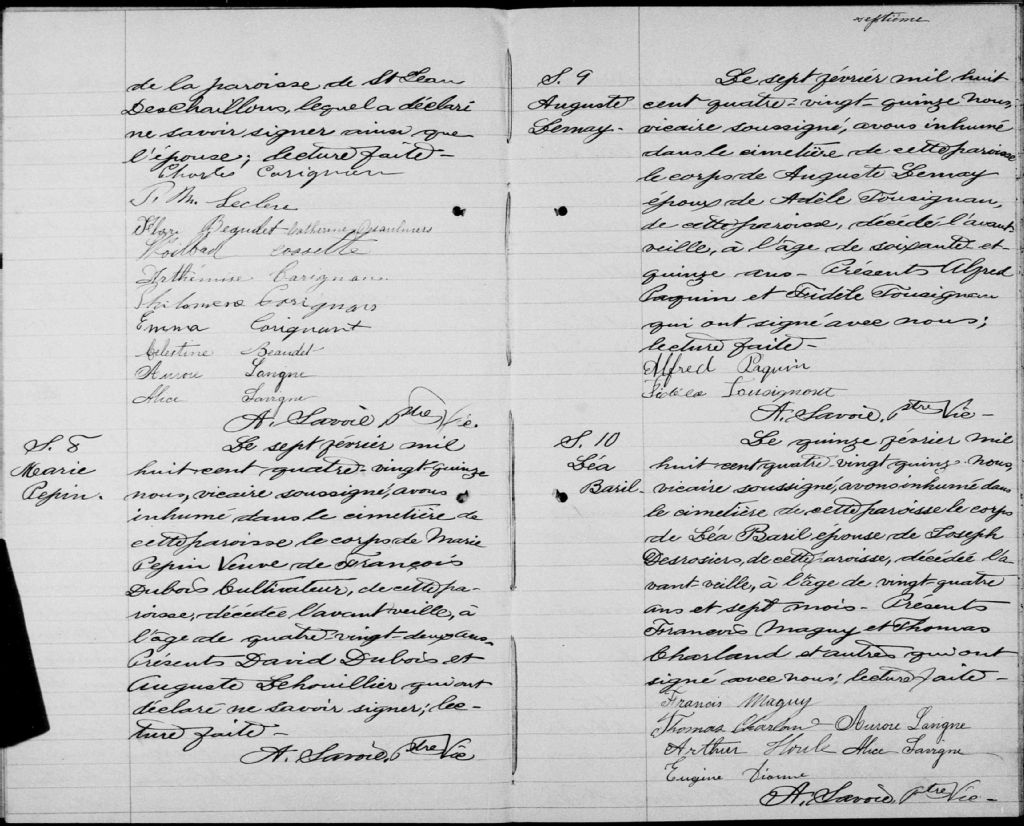 de la paroisse de St Jean
DesChaillons, lequel a déclaré
ne savoir signer ainsi que
l'épouse; lecture faite -
Charles Carignan
P. M. Leclerc
Beaudet Catherine Desaulniers
Cossette
Arthémise Carignan
Philomène Carignan
Emma Carignant
Celestine Beaudet
Aurore Lavigne
Alice Lavigne
A. Savoie, Ptre Vic.
S. 8
Marie
Pepin.
Le sept février mil
huit cent quatre-vingt-quinze
nous, vicaire soussigné, avons
inhumé dans le cimetière de
cette paroisse le corps de Marie
Pepin Veuve de François
Dubois Cultivateur, de cette pa-
roisse, décédée l'avant veille, à
l'âge de quatre vingt-deux ans.
Présents David Dubois et
Auguste Lehouillier qui ont
déclaré ne savoir signer; lec-
ture faite -
A. Savoie, Ptre Vic
septième
S. 9
Auguste
Lemay -
Le sept février mil huit
cent quatre-vingt-quinze nous,
vicaire soussigné, avons inhumé
dans le cimetière de cette paroisse
le corps de Auguste Lemay
époux de Adèle Tousignan,
de cette paroisse, décédé l'avant
veille, à l'âge de soixante et
quinze ans - Présents Alfred
Paquin et Fidèle Tousignan
qui ont signé avec nous;
lecture faite -
Alfred Paquin
Fidèle Tousignant
A. Savoie, Ptre Vic -
S. 10
Léa
Baril -
Le quinze février mil
huit cent quatre vingt quinz nous,
vicaire soussigné, avons inhumé dans
le cimetière de cette paroisse le corps
de Léa Baril épouse de Joseph
Desrosiers, de cette paroisse, décédée l'a-
vant veille, à l'âge de vingt-quatre
ans et sept mois - Présents
Francois Maguy et Thomas
Charland et autres qui ont
signé avec nous; lecture faite -
Francis Maguy
Thomas Charland Aurore Lavigne
Arthur Houle Alice Lavigne
Eugène Dionne
A. Savoie, Ptre Vic -